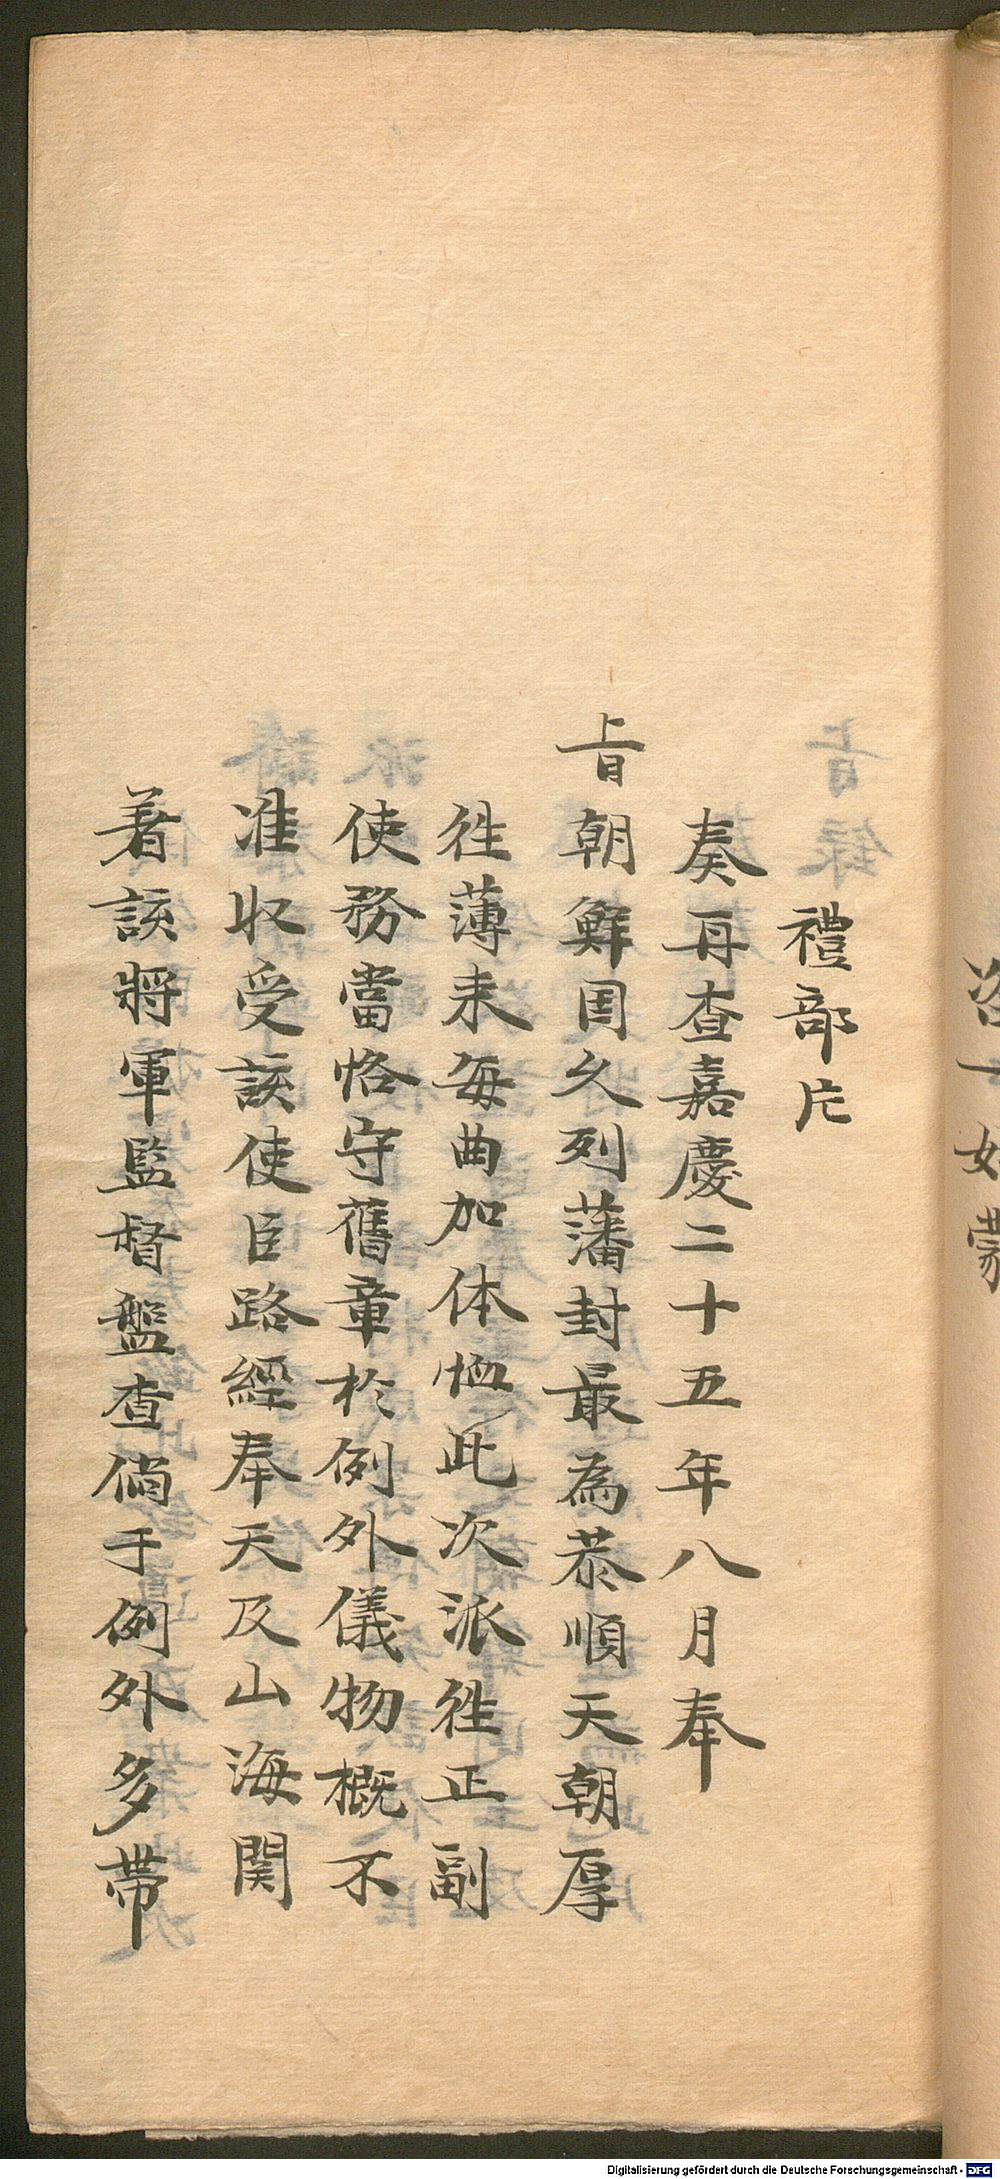 咨一如蒙
禮部片
奏再查嘉慶二十五年八月奉
旨朝鮮国久列藩封最為恭順天朝厚
徃薄来每曲加体恤此次派徃正副
使務當恪守舊章於例外儀物概不
准収受該使臣路經奉天及山海関
着該將軍監督盤查倘于例外多帶
Digitalisierung gefördert durch die Deutsche Forschungsgemeinschaft - DFG